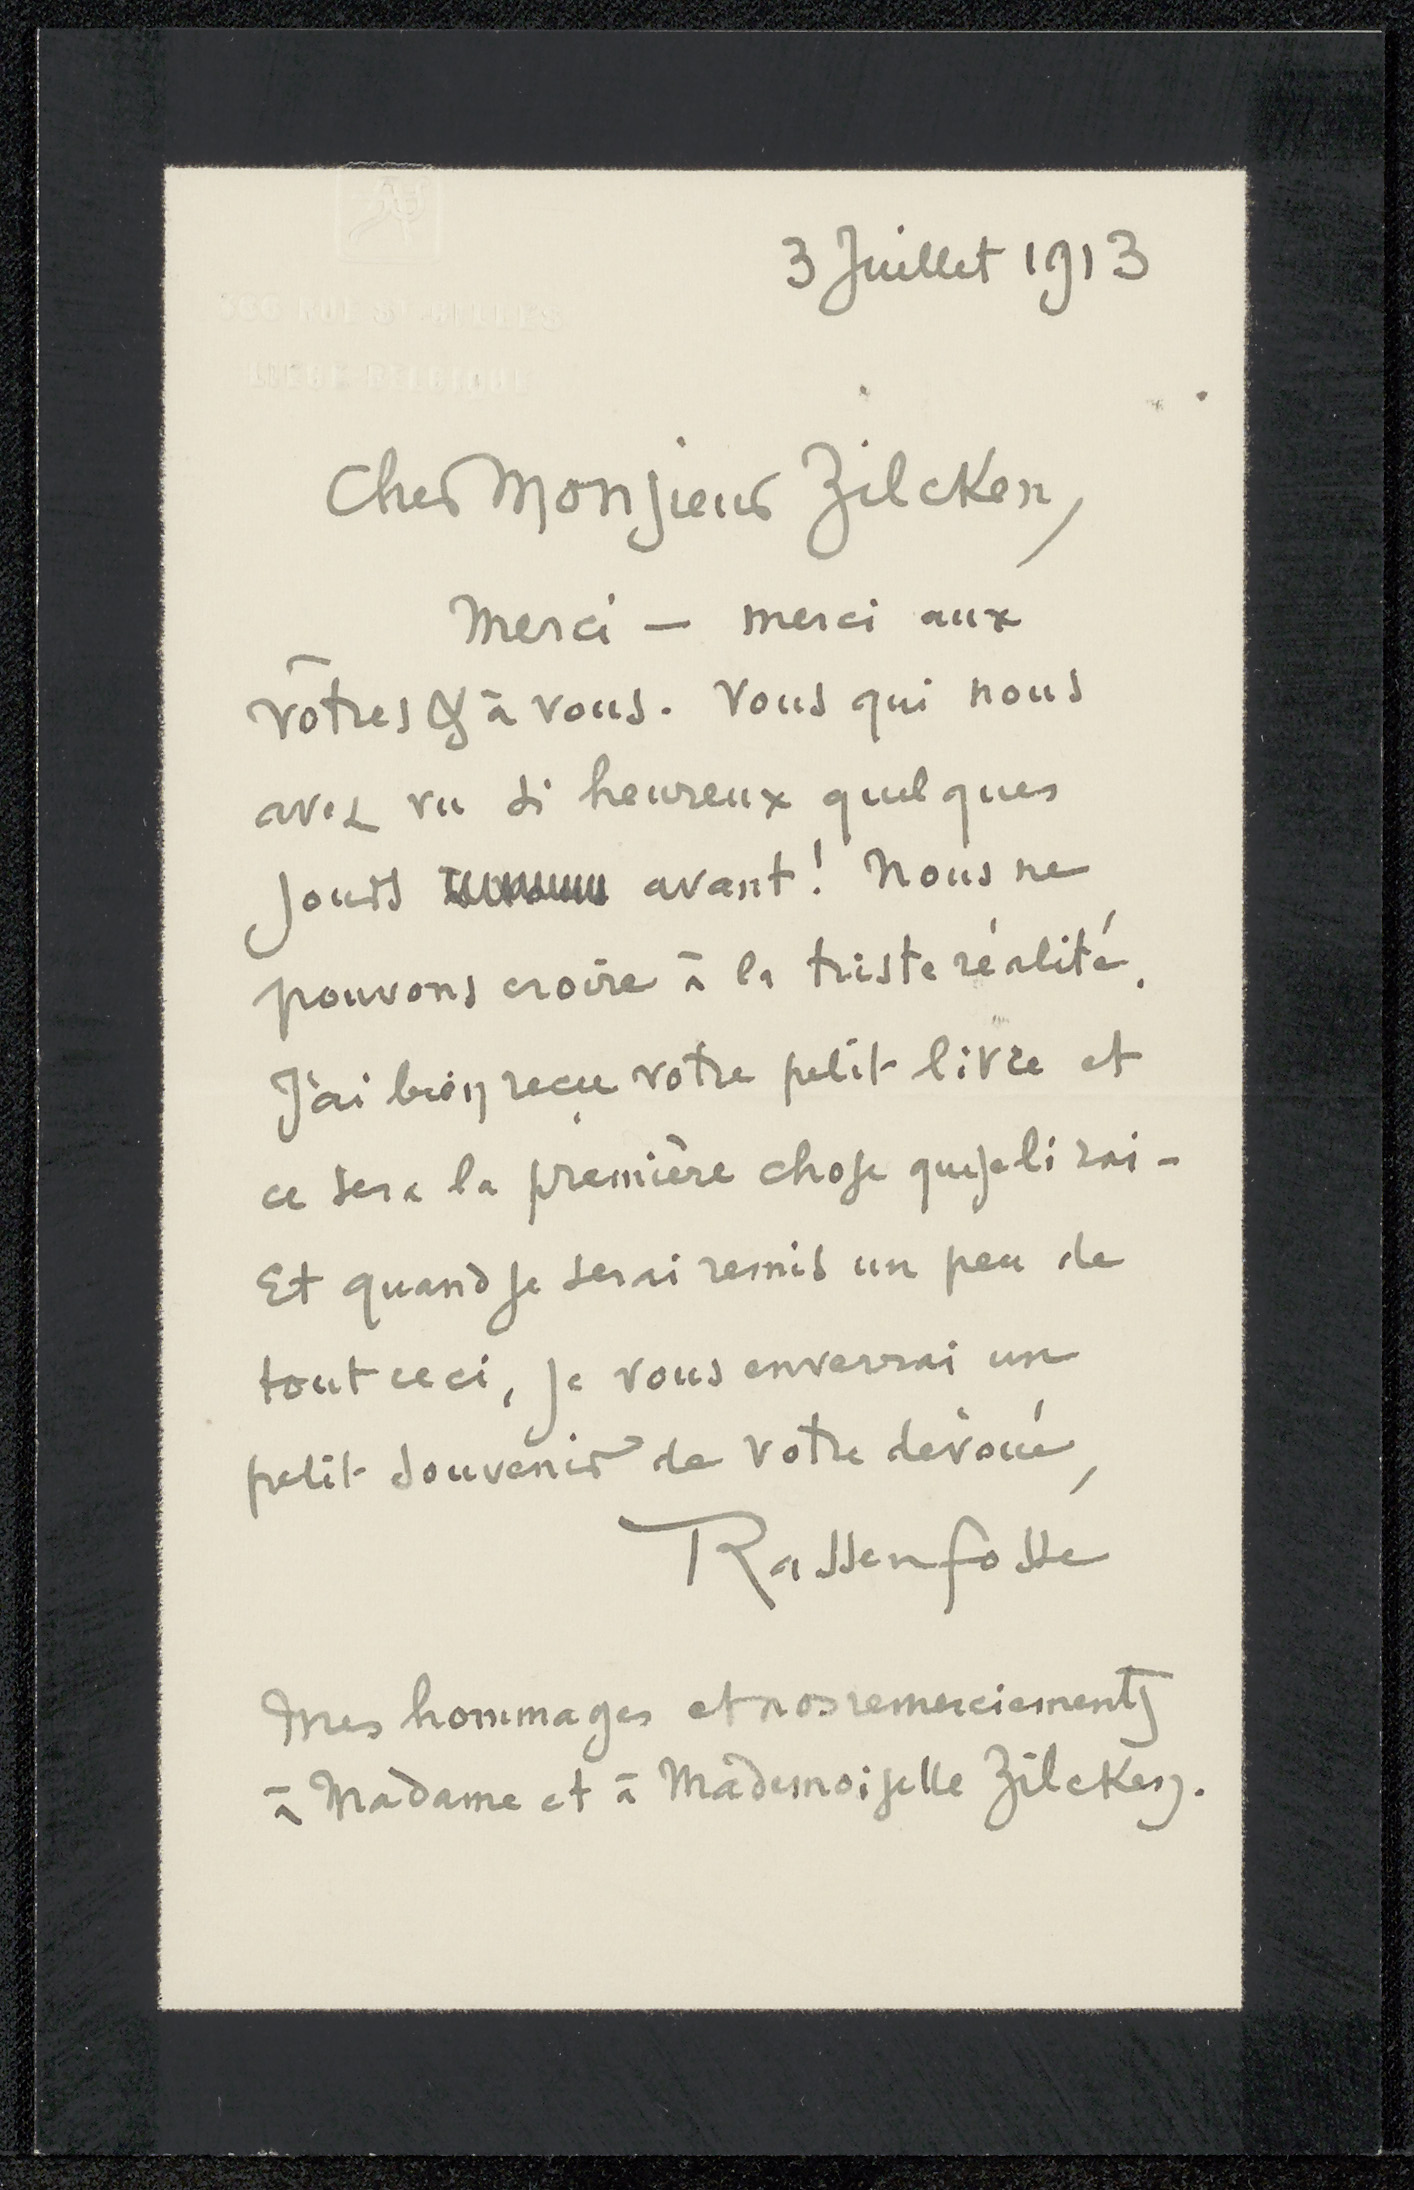 3 Juillet 1913
366 RUE ST-GILLES
LIEGE BELGIQUE
Cher Monsieur Zilcken,
Merci — merci aux
vôtres & à vous. Vous qui nous
avez vu si heureux quelques
jours avant! Nous ne
pouvons croire à la triste réalité.
J'ai bien reçu votre petit livre et
ce sera la première chose que je lirai –
Et quand je serai remis un peu de
tout ceci, je vous enverrai un
petit souvenir de votre dévoué,
Rassenfosse
Mes hommages et nos remerciements
à Madame et à Mademoiselle Zilcken.